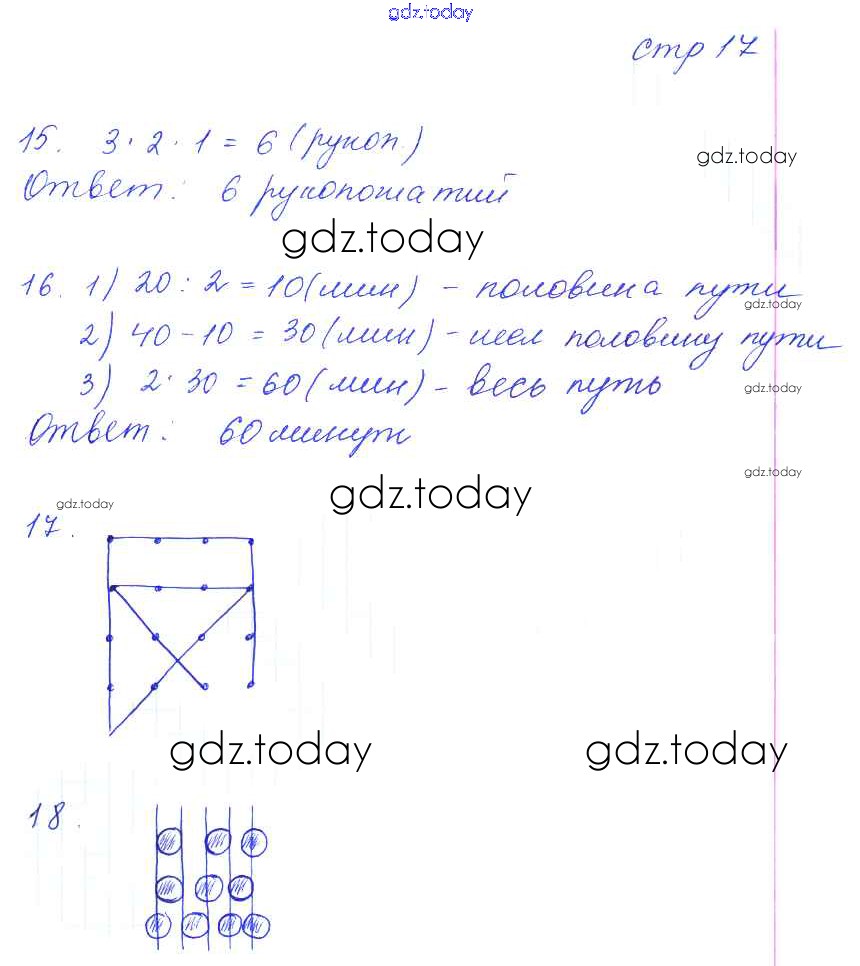 gdz.today
стр 17
15. 3 · 2 · 1 = 6 (рукоп.)
gdz.today
Ответ: 6 рукопожатий
gdz.today
16. 1) 20 : 2 = 10 (мин) - половина пути
gdz.today
2) 40 - 10 = 30 (мин) - шел половину пути
3) 2 · 30 = 60 (мин) - весь путь
gdz.today
Ответ: 60 минут
gdz.today
gdz.today
gdz.today
17.
gdz.today
gdz.today
18.